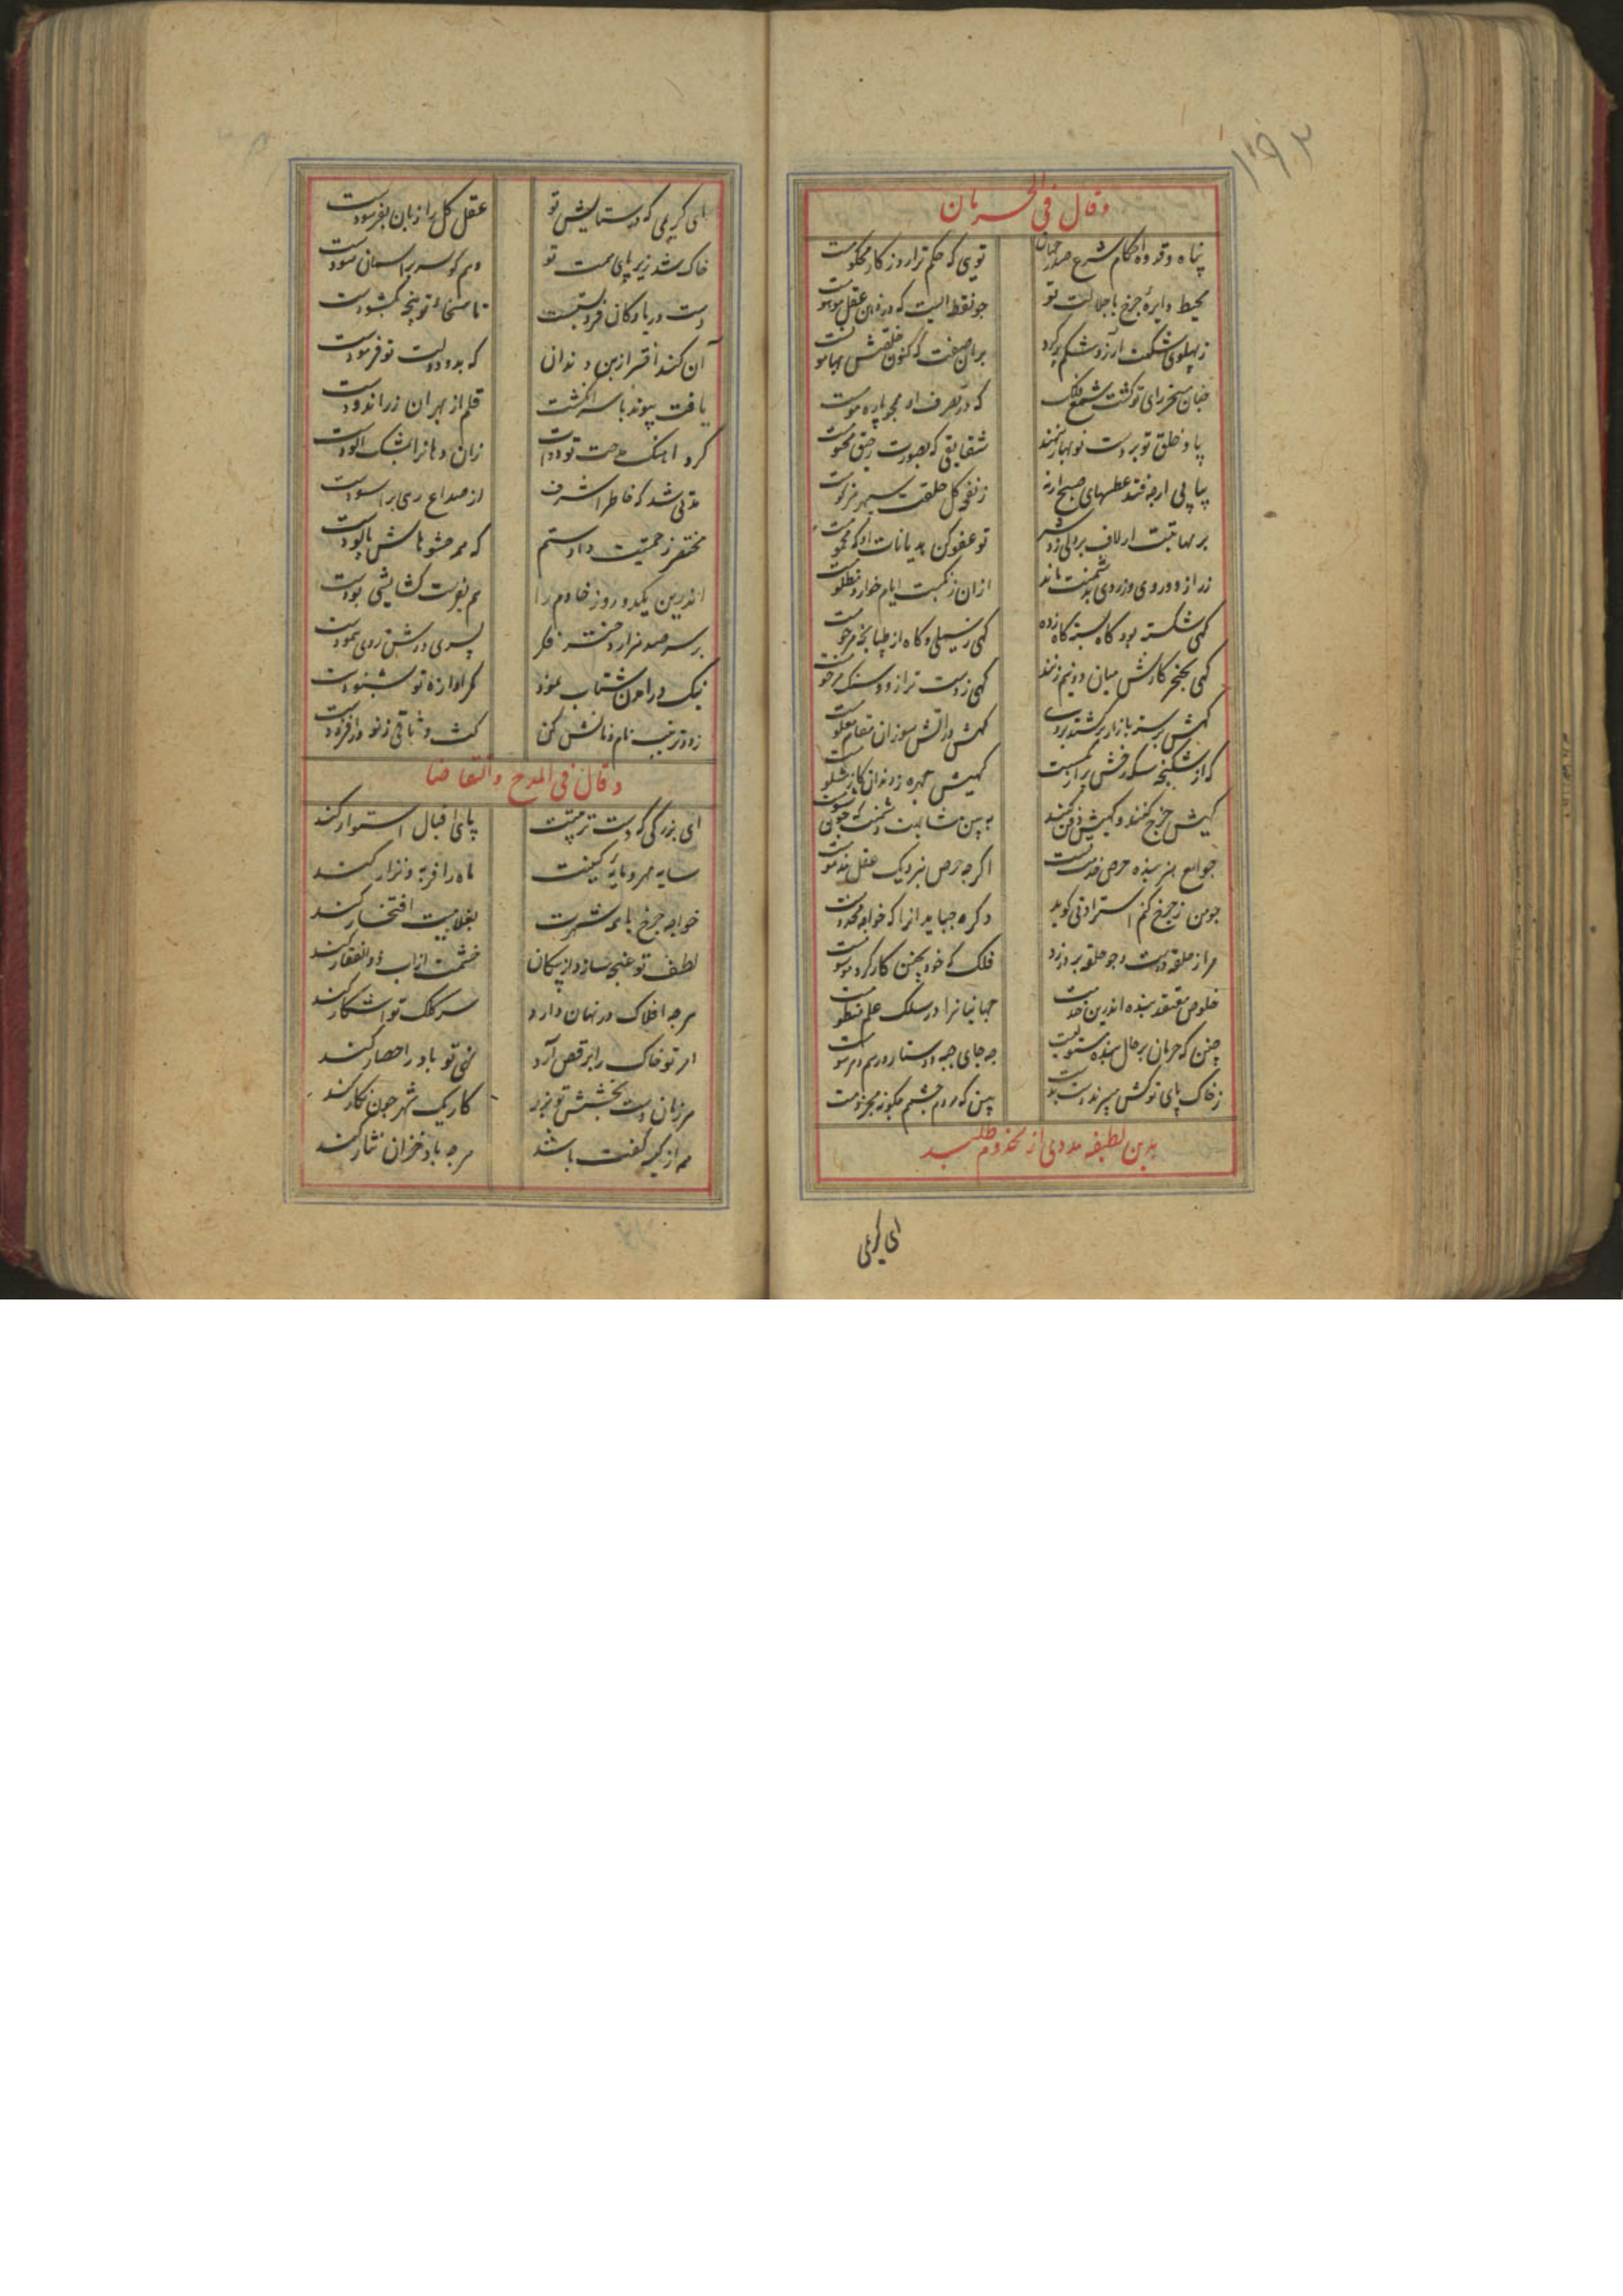 وقال فی الحرمان
پناه و قدوه احکام شرع صدر جهان
تویی که حکم ترا روزگار محکومست
محیط دایرهٔ چرخ با جلالت تو
چو نقطه ایست که در ذهن عقل موهومست
ز پهلوی شکمت آز و شکم پر کرد
بران صفت که کنون خلقش
چنان مسخر رای تو گشت شمع فلک
که در تصرف او همچو پاره مومست
بیاد خلق تو بر دست نوبهار نهند
شقایقی که بصورت رحیق مختومست
پیاپی ارچه فتد عطسهای صبح ارنه
ز نفحه گل خلقت سپهر مزکومست
بر مهابتت ار لاف پردلی زد شیر
تو عفو کن هذیانات او که محمومست
زر از دورویی و زردی بدشمنت ماند
ازان ز نکبت ایام خوار و مظلومست
گهی شکسته بود گاه بسته گاه زده
گهی ز سیلی و گاه از طپانچه مرحومست
گهی بخنجر کارش میان دو نیم زنند
گهی ز دست ترازو و سنک مرجومست
گهش بر سر بازار برکشند بروی
گهش در آتش سوزان مقام معلومست
که از شکنجه سکه رخش پر از
گهیش چهره ز دندان گاز
گهیش خرج کنند و گهیش دفن کنند
به بین مشابهت دشمنت که چون شومست
جوامع هنر بنده حرص خدمت تست
اگرچه حرص بنزدیک عقل مذمومست
چو من ز چرخ کنم استزادتی گوید
دگر چه باید انرا که خواجه مخدومست
مرا ز حلقه درست و چو حلقه بر در زد
فلک که خود بچنین کار کرد موسومست
خلوص معتقد بنده اندرین خدمت
جهانیانرا در سلک علم منظومست
چنین که حرمان بر حال بنده مستولیست
چه جای جبه و دستار و رسم مرسومست
ز خاک پای تو کش سپرند دست بدست
ببین که مردم چشمم چگونه محرومست
بدین لطیفه مددی از مخدوم طلبید
ای کریمی
ای کریمی که در ستایش تو
عقل کل را زبان بفرسودست
خاک شد زیر پای همت تو
وهم کو سر بر آسمان سودست
دست دریا و کان فرو بستست
تا سخای تو پنجه بگشودست
آن کند افسر از بن دندان
که بدو دولت تو فرمودست
یافت پیوند با سر انگشتت
قلم از بهر آن زر اندودست
کرد اهنک مدحت تو دوات
زان دهانرا بمشک الودست
مدتی شد که خاطر اشرف
از صداع رهی بر اسودست
مختصر زحمتیت دادستم
که همه حشوهاش پالودست
اندرین یکدو روز خادم را
هم بفرت گشایشی بودست
بر سر صد هزار دختر فکر
پسری در رخش روی بنمودست
نیک در آمدن شتاب نمود
مگر آوازه تو بشنودست
زودتر جیب نام و نانش کن
کش وثاقی ز نو در افزودست
وقال فی المدح والتقاضا
ای بزرگی که دست تربیتت
پای اقبال استوار کند
سایه مهر و مایه کینت
ماه را فربه و نزار کند
خواجه چرخ با همه شهرت
بغلامیت افتخار کند
لطف تو غنچه سازد از پیکان
خشمت از آب ذوالفقار کند
هرچه افلاک در نهان دارد
سر کلک تو آشکار کند
امر تو خاک را برقص آرد
نهی تو باد را حصار کند
هر زمان دست بخشش تو بزر
کار یک شهر چون نگار کند
هم از کیسه کفت باشد
هرچه باد خزان نثار کند